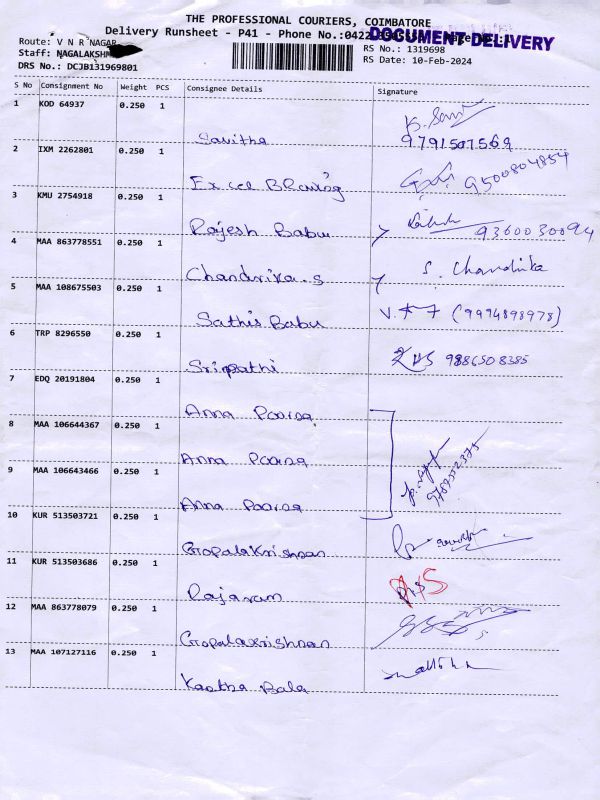 THE PROFESSIONAL COURIERS, COIMBATORE
Delivery Runsheet - P41 - Phone No.:0422
DOCUMENT DELIVERY
Route: V N R NAGAR
RS No.: 1319698
Staff: NAGALAKSHM
RS Date: 10-Feb-2024
DRS No.: DCJB131969801
S No Consignment No Weight PCS Consignee Details Signature
1 KOD 64937 0.250 1 Savitha 9791501569
2 IXM 2262801 0.250 1 9500804854
3 KMU 2754918 0.250 1 Rajesh Babu 9360030094
4 MAA 863778551 0.250 1 Chandrika.s S. Chandrika
5 MAA 108675503 0.250 1 Sathis Babu (9994898978)
6 TRP 8296550 0.250 1 Sripathi 9886508385
7 EDQ 20191804 0.250 1 Anna Poorna
8 MAA 106644367 0.250 1 Anna Poorna
9 MAA 106643466 0.250 1 Anna Poorna
10 KUR 513503721 0.250 1 Gopalakrishnan
11 KUR 513503686 0.250 1 Rajaram
12 MAA 863778079 0.250 1 Gopalakrishnan
13 MAA 107127116 0.250 1 Bala